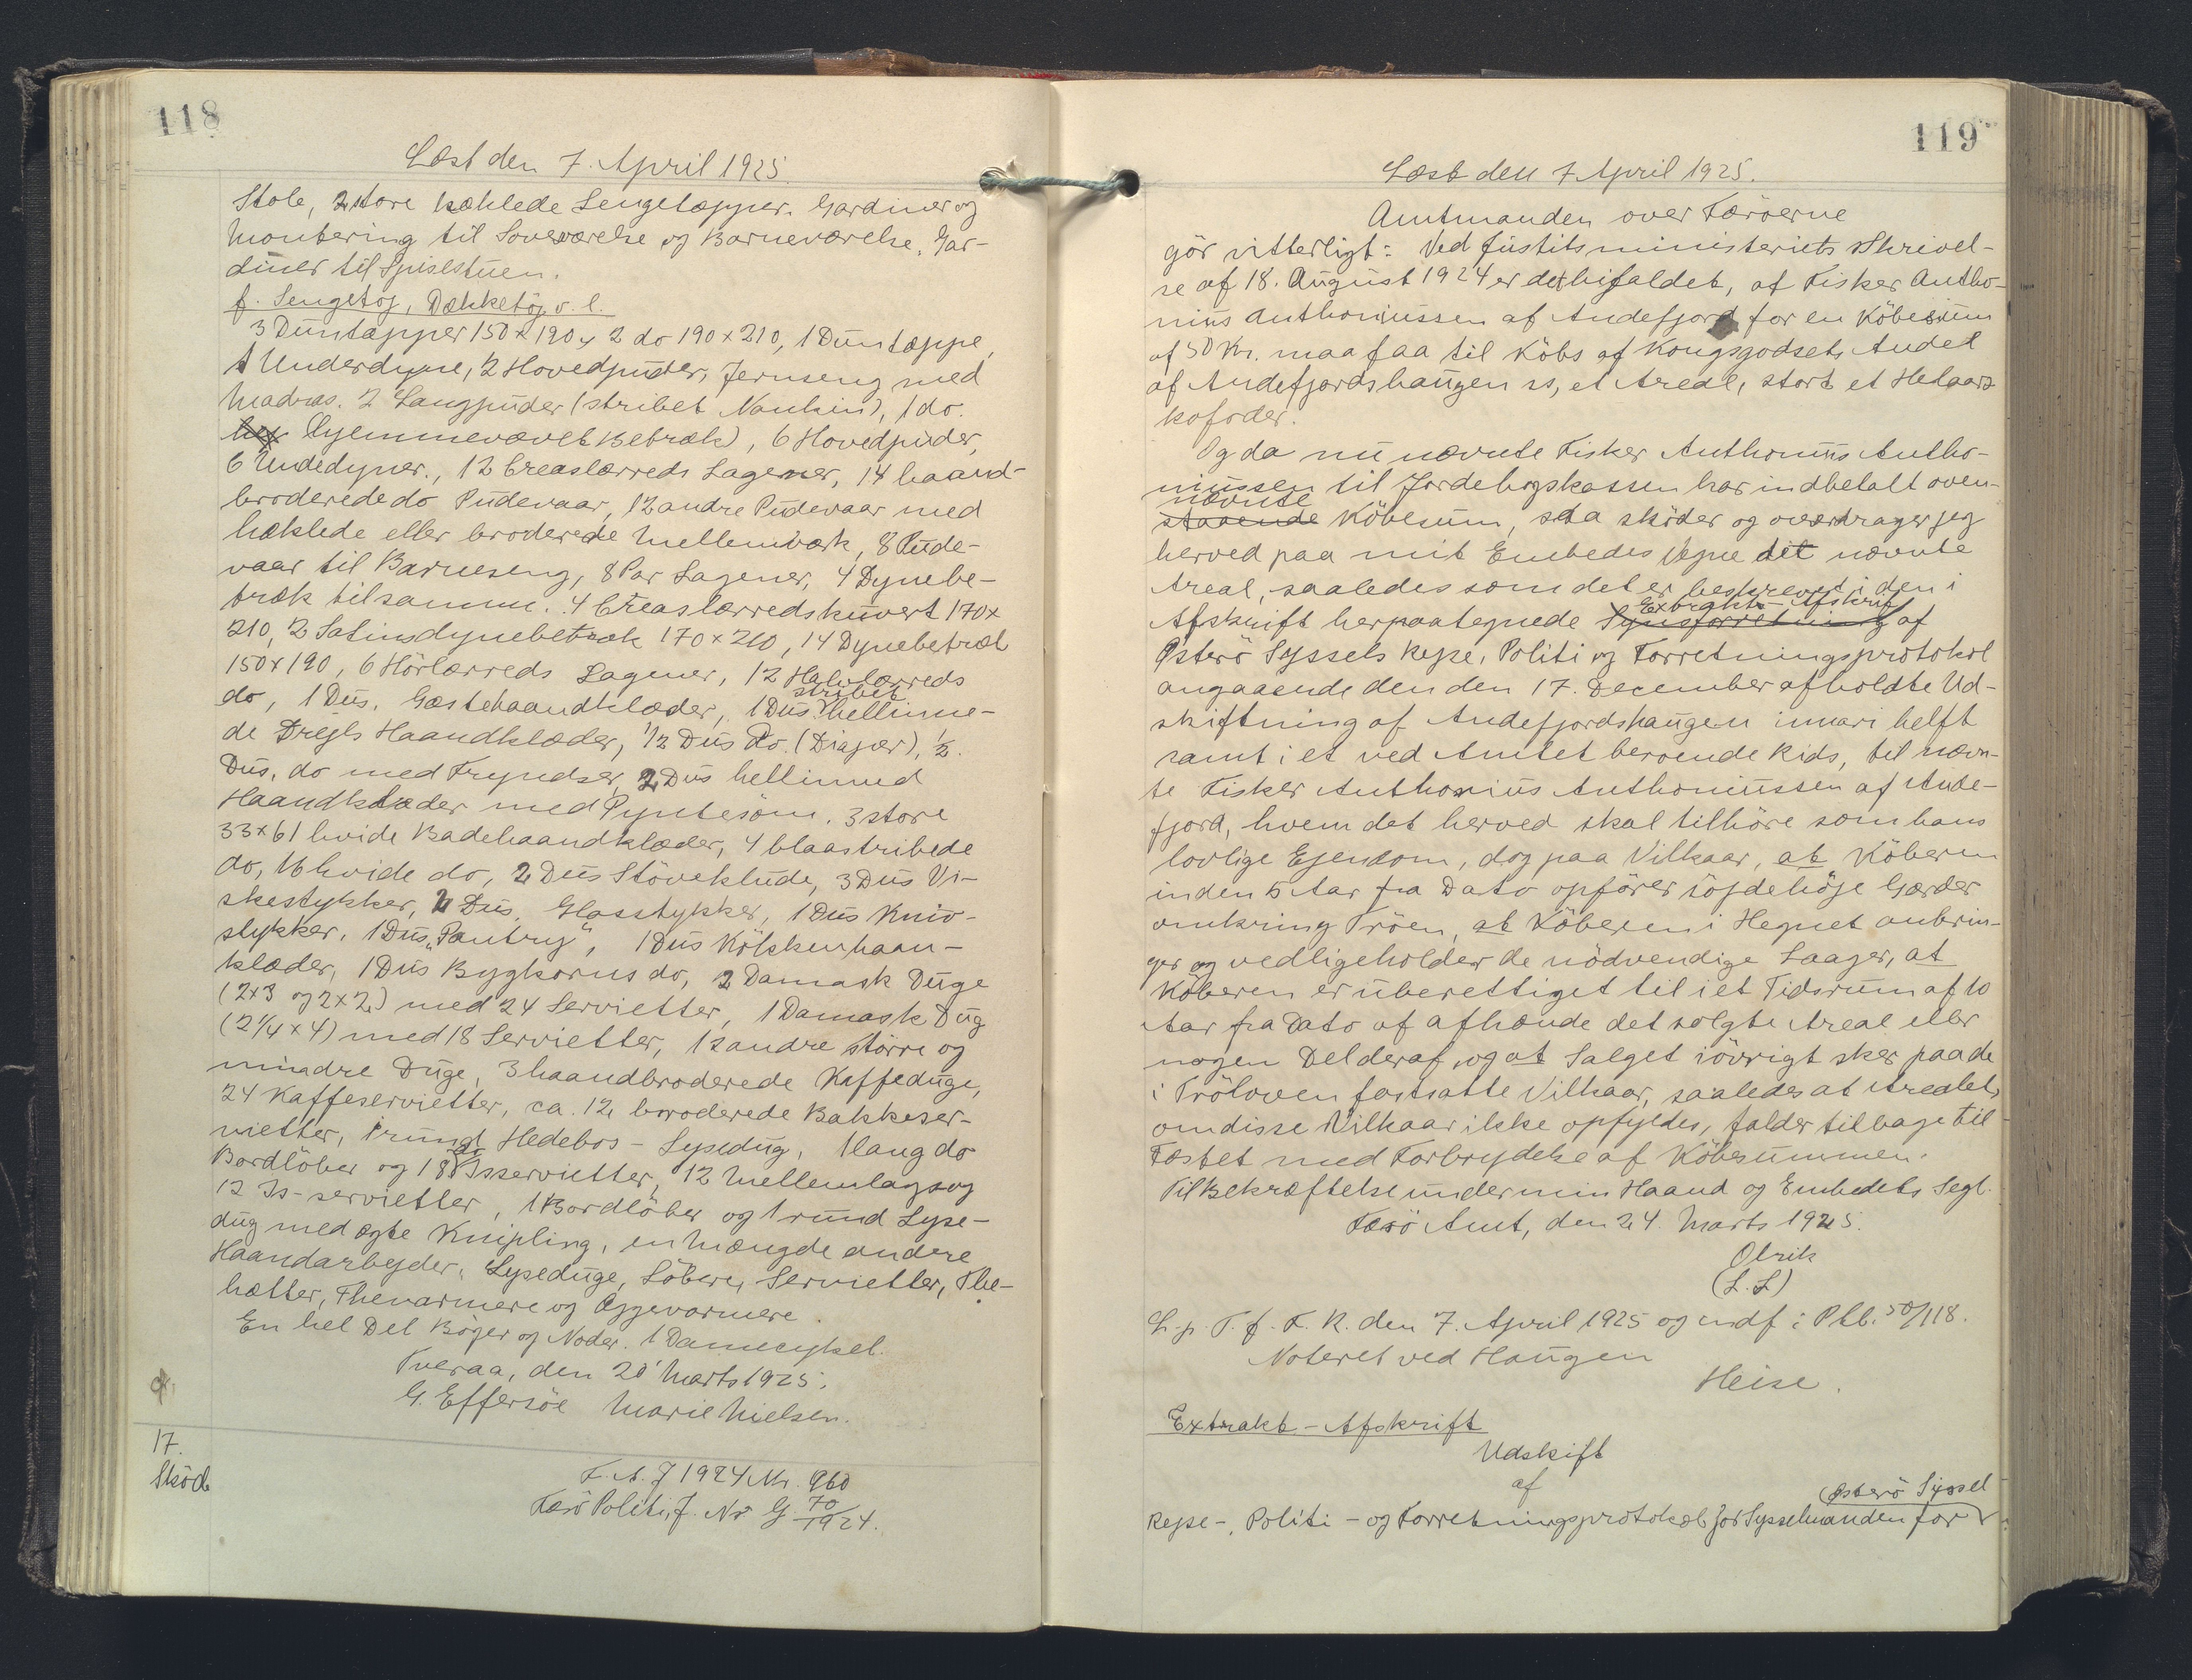 118
Læst den 7. April 1925.
Stole, 2 store hæklede Sengetæpper. Gardiner og
Montering til Soveværelse og Barneværelse. Gar-
diner til Spisestuen.
f. Sengetøj, Dækketøj o. l.
3 Duntæpper 150 x 190, 2 do 190 x 210, 1 Duntæppe,
1 Underdyne, 2 Hovedpuder, Jernseng med
Madras. 2 Langpuder (stribet Nankin), 1 do.
(hjemmevævet Betræk), 6 Hovedpuder,
6 Undedyner., 12 Creaslærreds Lagener, 14 haand-
broderede do Pudevaar, 12 andre Pudevaar med
hæklede eller broderede Mellemværk, 8 Pude-
vaar til Barneseng, 8 Par Lagener, 4 Dynebe-
træk tilsamme. 4 Creaslærredskuvert 170 x
210, 2 Satinsdynebetræk 170 x 210, 14 Dynebetræk
150 x 190, 6 Hörlærreds Lagener, 12 Halvlærreds
do, 1 Dus. Gæstehaandklæder, 1 Dus. stribet hellinne-
de Drejls Haandklæder, 1/2 Dus do. (Diajær), 1/2.
Dus, do med Fryndser, 2 Dus hellinned
Haandklæder med Pyntesöm. 3 store
33 x 61 hvide Badehaandklæder, 4 blaastribede
do, 16 hvide do, 2 Dus Stöveklude, 3 Dus Vi-
skestykker, 2 Dus. Glasstykker, 1 Dus Kniv-
stykker, 1 Dus „Pantry", 1 Dus Kökkenhaan-
klæder, 1 Dus Bygkorns do, 2 Damask Duge
(2x3 og 2x2) med 24 Servietter, 1 Damask Dug
(2 1/4 x 4) med 18 Servietter, 12 andre större og
mindre Duge, 3 haandbroderede Kaffeduge,
24 Kaffeservietter, ca. 12 broderede Bakkeser-
vietter, 1 rund Hedebos - Lysedug, 1 lang do
Bordlöber og 18 do Isservietter, 12 Mellemlags og
12 Is-servietter, 1 Bordlöber og 1 rund Lyse-
dug med ægte Knipling, en Mængde andre
Haandarbejder, Lyseduge, Löbere, Servietter, The-
hætter, Thevarmere og Æggevarmere.
En hel Del Böger og Noder. 1 Damecykel.
Tveraa, den 20' Marts 1925.
G. Effersöe Marie Nielsen.
17.
Sköde
F. A. J 1924 Nr. 960
Færö Politi, J. Nr G 70/1924.
119
Læst den 7 April 1925.
Amtmanden over Færöerne
gör vitterligt: Ved Justitsministeriets Skrivel-
se af 18. August 1924 er det bifaldet, at Fisker Antho-
nius Anthoniussen af Andefjord for en Köbesum
af 50 Kr. maa faa til Köbs af Kongsgodsets Andel
af Andefjordshaugen ss, et Areal, stort et Helaars
kofoder.
Og da nu nævnte Fisker Anthonius Antho-
niussen til Jordebogskassen har indbetalt oven-
nævnte
staaende Köbesum, saa sköder og overdrager jeg
herved paa mit Embedes Vegne det nævnte
Areal, saaledes som det er beskrevet i den i
Extrakt-Afskrift
Afskrift herpaategnede Synsforretning af
Østerö Syssels Rejse, Politi og Forretningsprotokol
angaaende den den 17. December afholdte Ud-
skiftning af Andefjordshaugen innari helft
samt i et ved Amtet beroende Rids, til nævn-
te Fisker Anthonius Anthoniussen af Ande-
fjord, hvem det herved skal tilhöre som hans
lovlige Ejendom, dog paa Vilkaar, at Köberen
inden 5 Aar fra Dato opförer söjdehöje Gærder
omkring Tröen, at Köberen i Hegnet anbrin-
ger og vedligeholder de nödvendige Laager, at
Köberen er uberettiget til i et Tidsrum af 10
Aar fra Dato at afhænde det solgte Areal eller
nogen Del deraf, og at Salget iövrigt sker paa de
i Tröloven fastsatte Vilkaar, saaledes at Arealet,
om disse Vilkaar ikke opfyldes, falder tilbage til
Fæstet med Forbrydelse af Köbesummen.
Til Bekræftelse under min Haand og Embedets Segl.
Færö Amt, den 24. Marts 1925.
Olrik
(L. S)
L. p. T. f. F. R. den 7. April 1925 og indf i Ptb. 50/118.
Noteret ved Haugen
Heise.
Extrakt - Afskrift
Udskift
af
Østerö Syssel
Rejse-, Politi - og Forretningsprotokol for Sysselmanden for